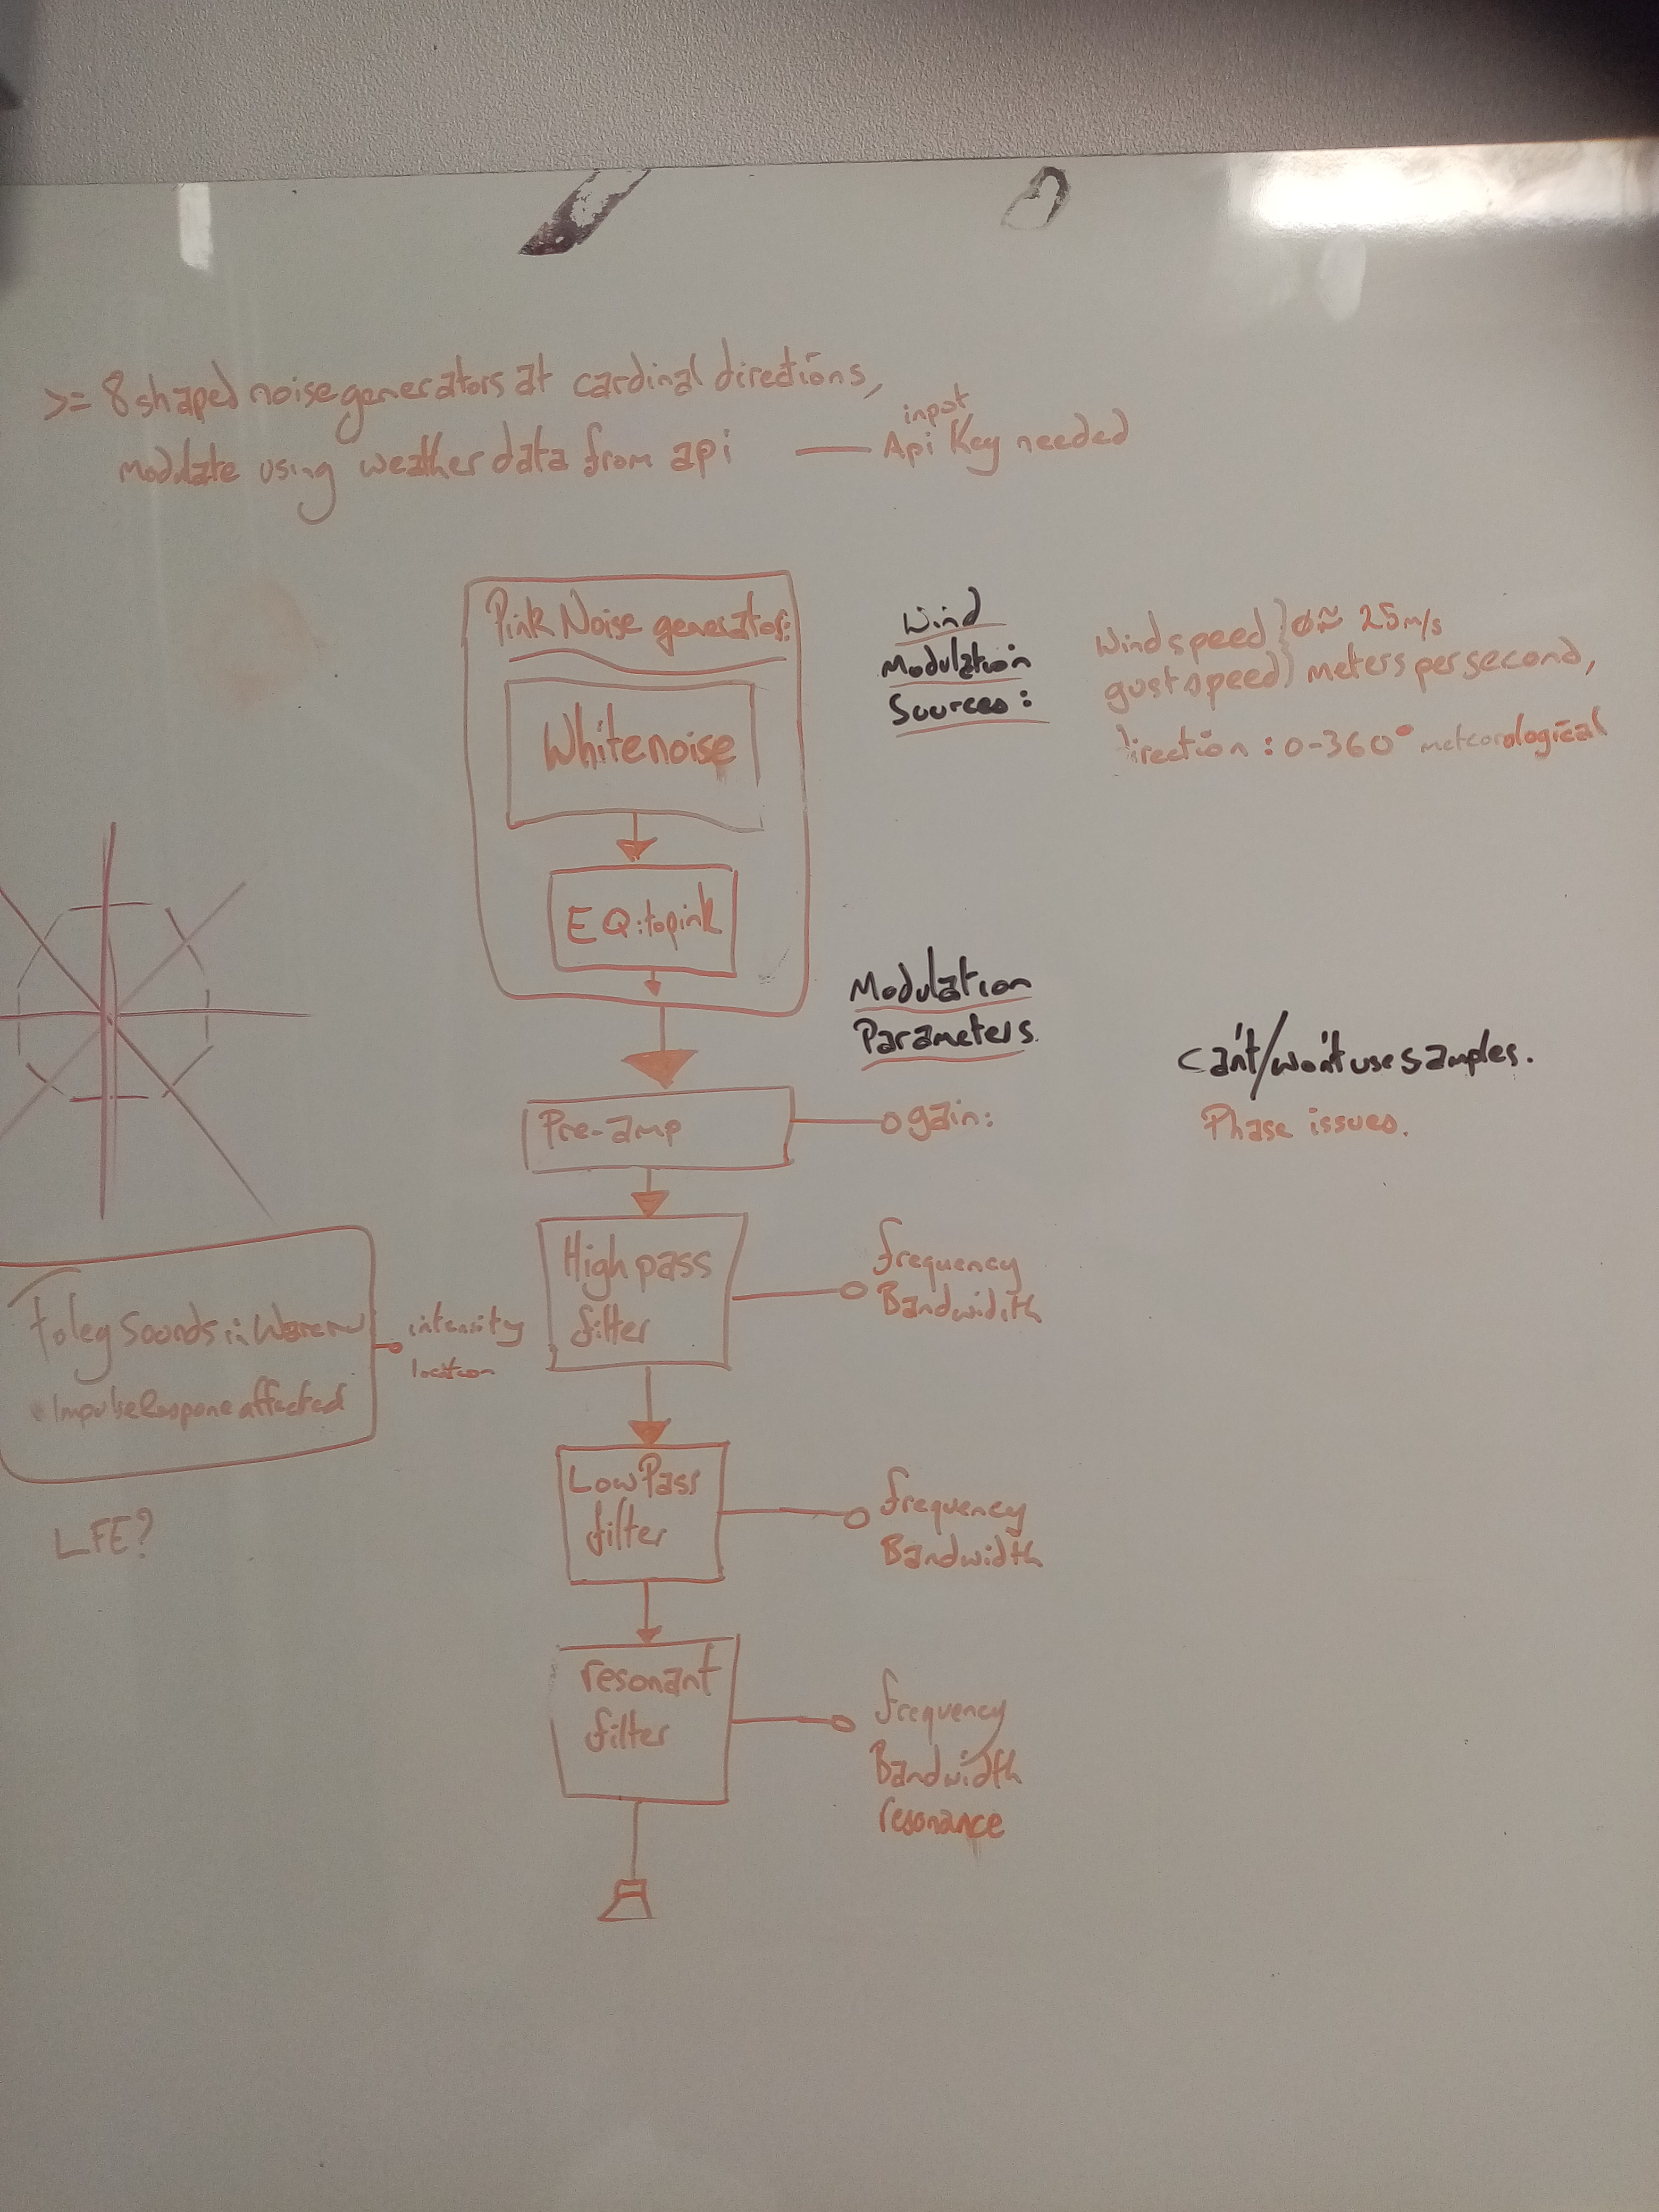 >= 8 shaped noise generators at cardinal directions,
modulate using weather data from api — input Api Key needed
Pink Noise generator:
White noise
EQ: to pink
Wind
Modulation
Sources:
Wind speed } 0 ≈ 25 m/s
gust speed } meters per second,
Direction : 0-360° meteorological
Modulation
Parameters.
can't/won't use samples.
Phase issues.
Pre-amp
gain:
High pass
filter
frequency
Bandwidith
Foley Sounds in
• Impulse Respone affected
intensity
location
LFE?
Low Pass
filter
frequency
Bandwidth
resonant
filter
frequency
Bandwidth
resonance